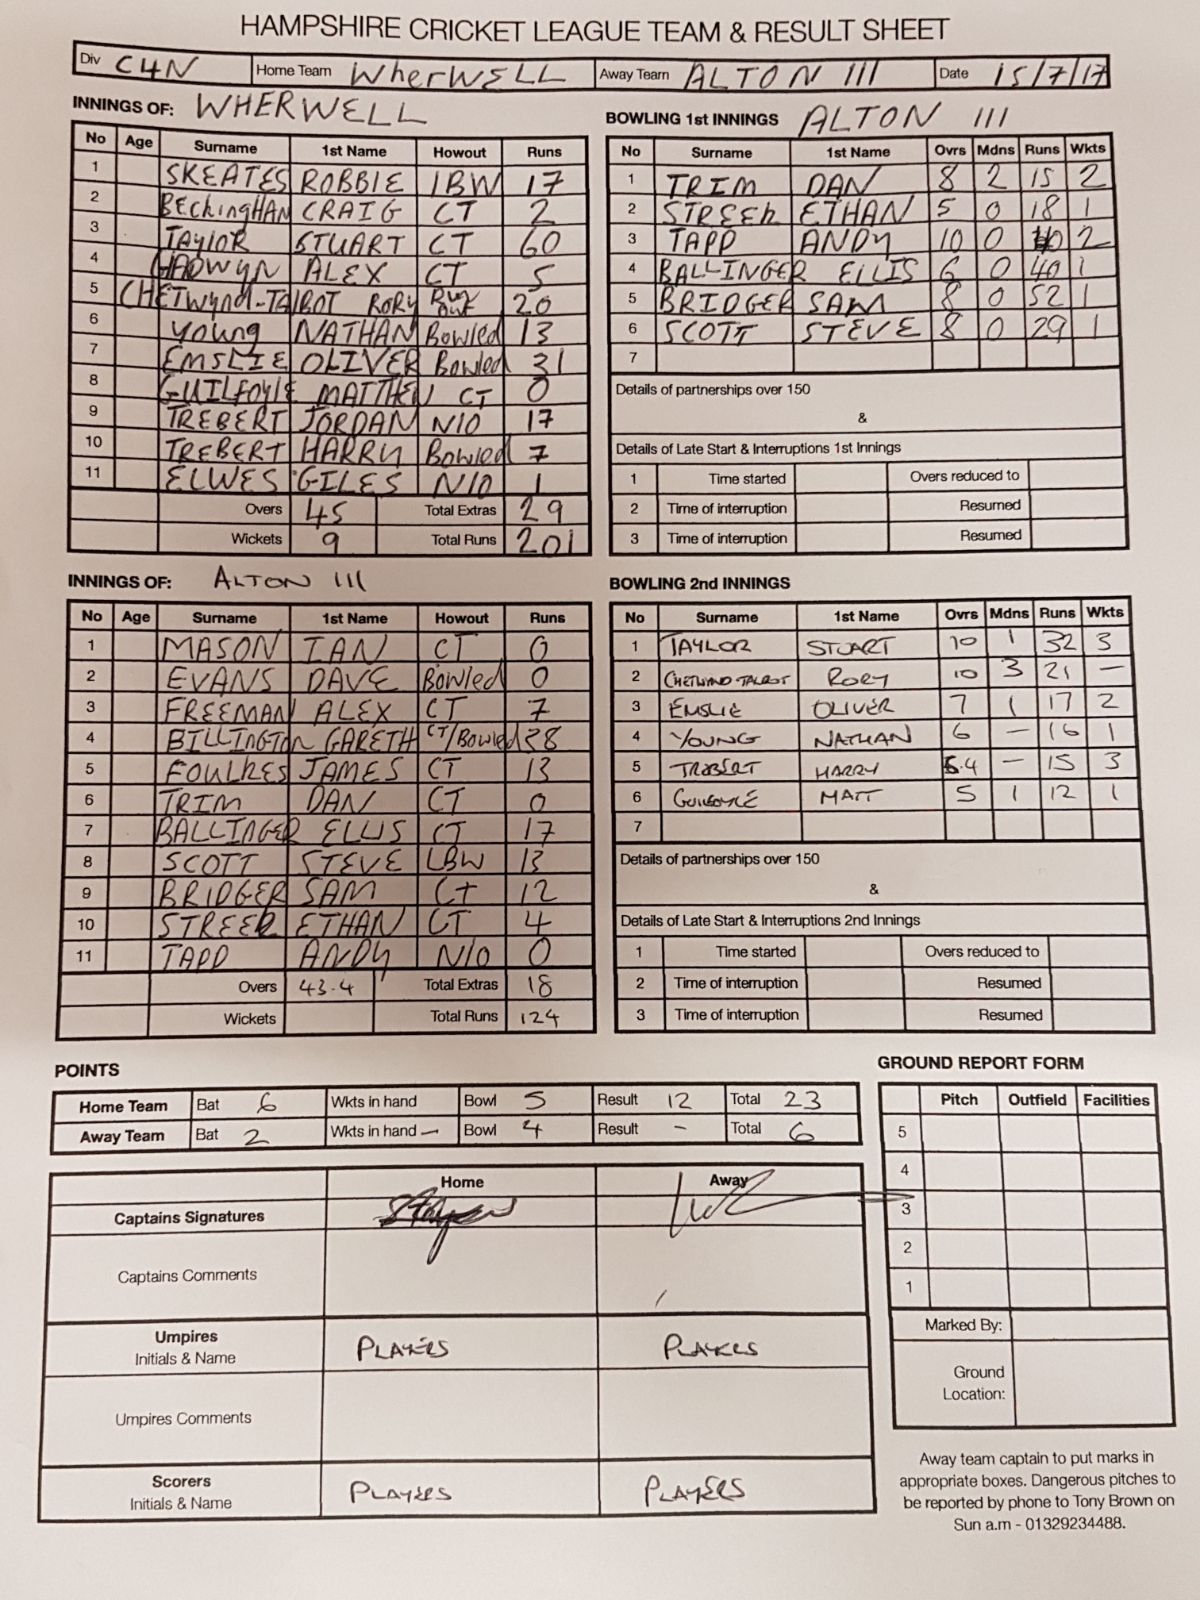 HAMPSHIRE CRICKET LEAGUE TEAM & RESULT SHEET
Div C4N Home Team WherWELL Away Team ALTON III Date 15/7/17
INNINGS OF: WHERWELL
No Age Surname 1st Name Howout Runs
1 SKEATES ROBBIE LBW 17
2 BECkingHAN CRAIG CT 2
3 TAYLOR STUART CT 60
4 HADWYN ALEX CT 5
5 CHETWynd-TALBOT RORY Run out 20
6 young NATHAN Bowled 13
7 EMSLIE OLIVER Bowled 31
8 GUILFoyle MATTHEW CT 0
9 TREBERT JORDAN N/O 17
10 TREBERT HARRY Bowled 7
11 ELWES GILES N/O 1
Overs 45 Total Extras 29
Wickets 9 Total Runs 201
BOWLING 1st INNINGS ALTON III
No Surname 1st Name Ovrs Mdns Runs Wkts
1 TRIM DAN 8 2 15 2
2 STREEK ETHAN 5 0 18 1
3 TAPP ANDY 10 0 40 2
4 BALLINGER ELLIS 6 0 40 1
5 BRIDGER SAM 8 0 52 1
6 SCOTT STEVE 8 0 29 1
7
Details of partnerships over 150
&
Details of Late Start & Interruptions 1st Innings
1 Time started Overs reduced to
2 Time of interruption Resumed
3 Time of interruption Resumed
INNINGS OF: ALTON III
No Age Surname 1st Name Howout Runs
1 MASON IAN CT 0
2 EVANS DAVE Bowled 0
3 FREEMAN ALEX CT 7
4 BILLINGTON GARETH CT/Bowled 38
5 FOULKES JAMES CT 13
6 TRIM DAN CT 0
7 BALLINGER ELLIS CT 17
8 SCOTT STEVE LBW 13
9 BRIDGER SAM CT 12
10 STREEK ETHAN CT 4
11 TAPP ANDY N/O 0
Overs 43.4 Total Extras 18
Wickets Total Runs 124
BOWLING 2nd INNINGS
No Surname 1st Name Ovrs Mdns Runs Wkts
1 TAYLOR STUART 10 1 32 3
2 CHETWYND TALBOT RORY 10 3 21 —
3 EMSLIE OLIVER 7 1 17 2
4 YOUNG NATHAN 6 — 16 1
5 TREBERT HARRY 5.4 — 15 3
6 GUILFOYLE MATT 5 1 12 1
7
Details of partnerships over 150
&
Details of Late Start & Interruptions 2nd Innings
1 Time started Overs reduced to
2 Time of interruption Resumed
3 Time of interruption Resumed
POINTS
Home Team Bat 6 Wkts in hand Bowl 5 Result 12 Total 23
Away Team Bat 2 Wkts in hand — Bowl 4 Result - Total 6
Home Away
Captains Signatures
Captains Comments
Umpires
Initials & Name PLAYERS PLAYERS
Umpires Comments
Scorers
Initials & Name PLAYERS PLAYERS
GROUND REPORT FORM
Pitch Outfield Facilities
5
4
3
2
1
Marked By:
Ground
Location:
Away team captain to put marks in
appropriate boxes. Dangerous pitches to
be reported by phone to Tony Brown on
Sun a.m - 01329234488.